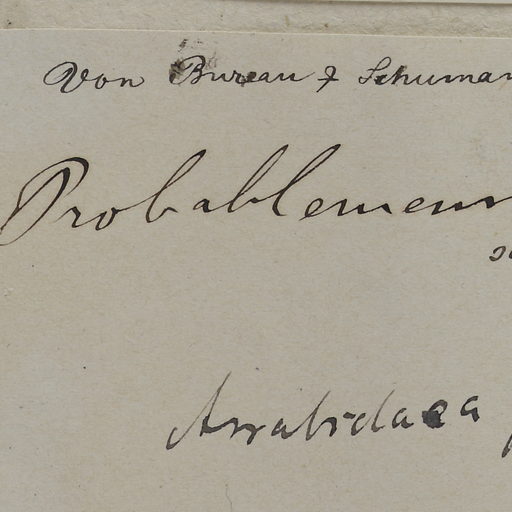 Von Bureau & Schuman
Probablemen
Arrabidaea